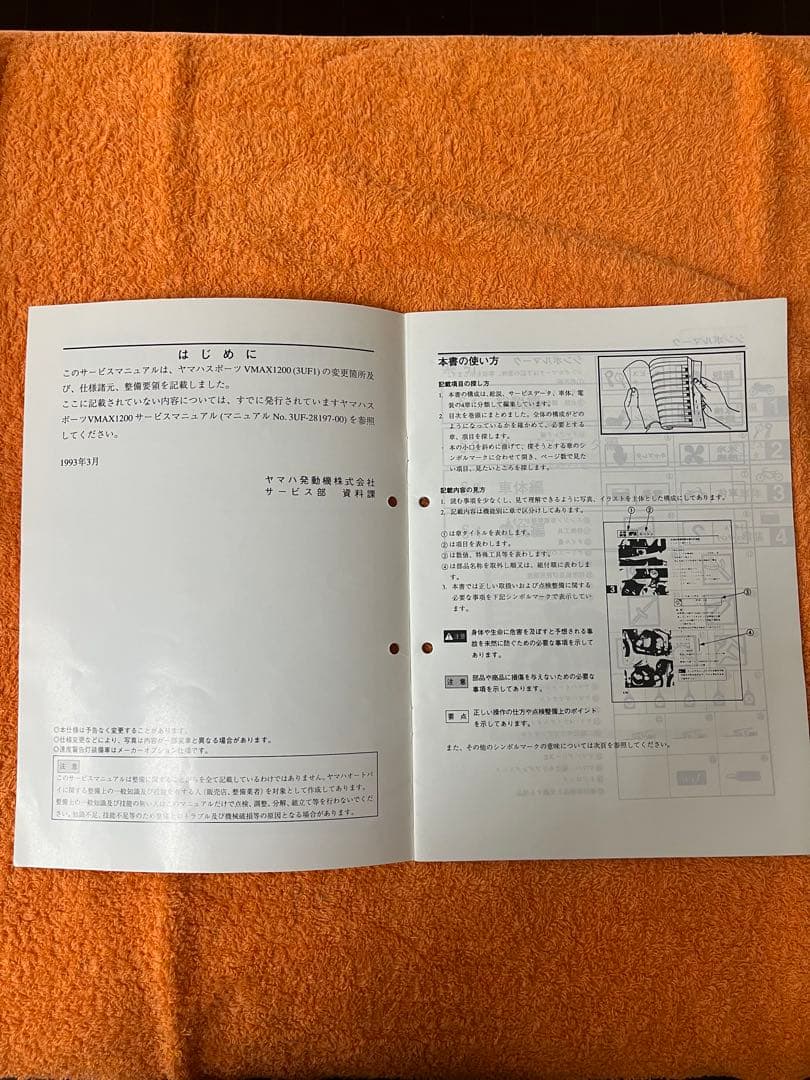 はじめに
このサービスマニュアルは、ヤマハスポーツVMAX1200 (3UF1) の変更箇所及
び、仕様諸元、整備要領を記載しました。
ここに記載されていない内容については、すでに発行されていますヤマハス
ポーツVMAX1200 サービスマニュアル (マニュアル No. 3UF-28197-00) を参照
してください。
1993年3月
ヤマハ発動機株式会社
サービス部 資料課
○本仕様は予告なく変更することがあります。
○仕様変更などにより、写真は内容が一部実車と異なる場合があります。
○速度警告灯装備車はメーカーオプション仕様です。
注 意
このサービスマニュアルは整備に関することがらを全て記載しているわけではありません。ヤマハオートバ
イに関する整備上の一般知識及び技能を有する人 (販売店、整備業者) を対象として作成してあります。
整備上の一般知識及び技能の無い人はこのマニュアルだけで点検、調整、分解、組立て等を行わないでくだ
さい。知識不足、技能不足等のため整備上のトラブル及び機械破損等の原因となる場合があります。
本書の使い方
記載項目の探し方
1. 本書の構成は、総説、サービスデータ、車体、電
装の4章に分類して編集しています。
2. 目次を巻頭にまとめました。全体の構成がどの
ようになっているかを確かめて、必要とする
章、項目を探します。
本の小口を斜めに曲げて、探そうとする章のシ
ンボルマークに合わせて開き、ページ数で見た
い項目、見たいところを探します。
記載内容の見方
1. 読む事項を少なくし、見て理解できるように写真、イラストを主体とした構成にしてあります。
2. 記載内容は機能別に章で区分けしてあります。
① ②
①は章タイトルを表わします。
②は項目を表わします。
③は数値、特殊工具等を表わします。
④は部品名称を取外し順又は、組付順に表わしま
す。
3. 本書では正しい取扱いおよび点検整備に関する
必要な事項を下記シンボルマークで表示してい
ます。
3
③
④
注意 身体や生命に危害を及ぼすと予想される事
故を未然に防ぐための必要な事項を示して
あります。
注 意 部品や商品に損傷を与えないための必要な
事項を示してあります。
要 点 正しい操作の仕方や点検整備上のポイント
を示してあります。
また、その他のシンボルマークの意味については次頁を参照してください。